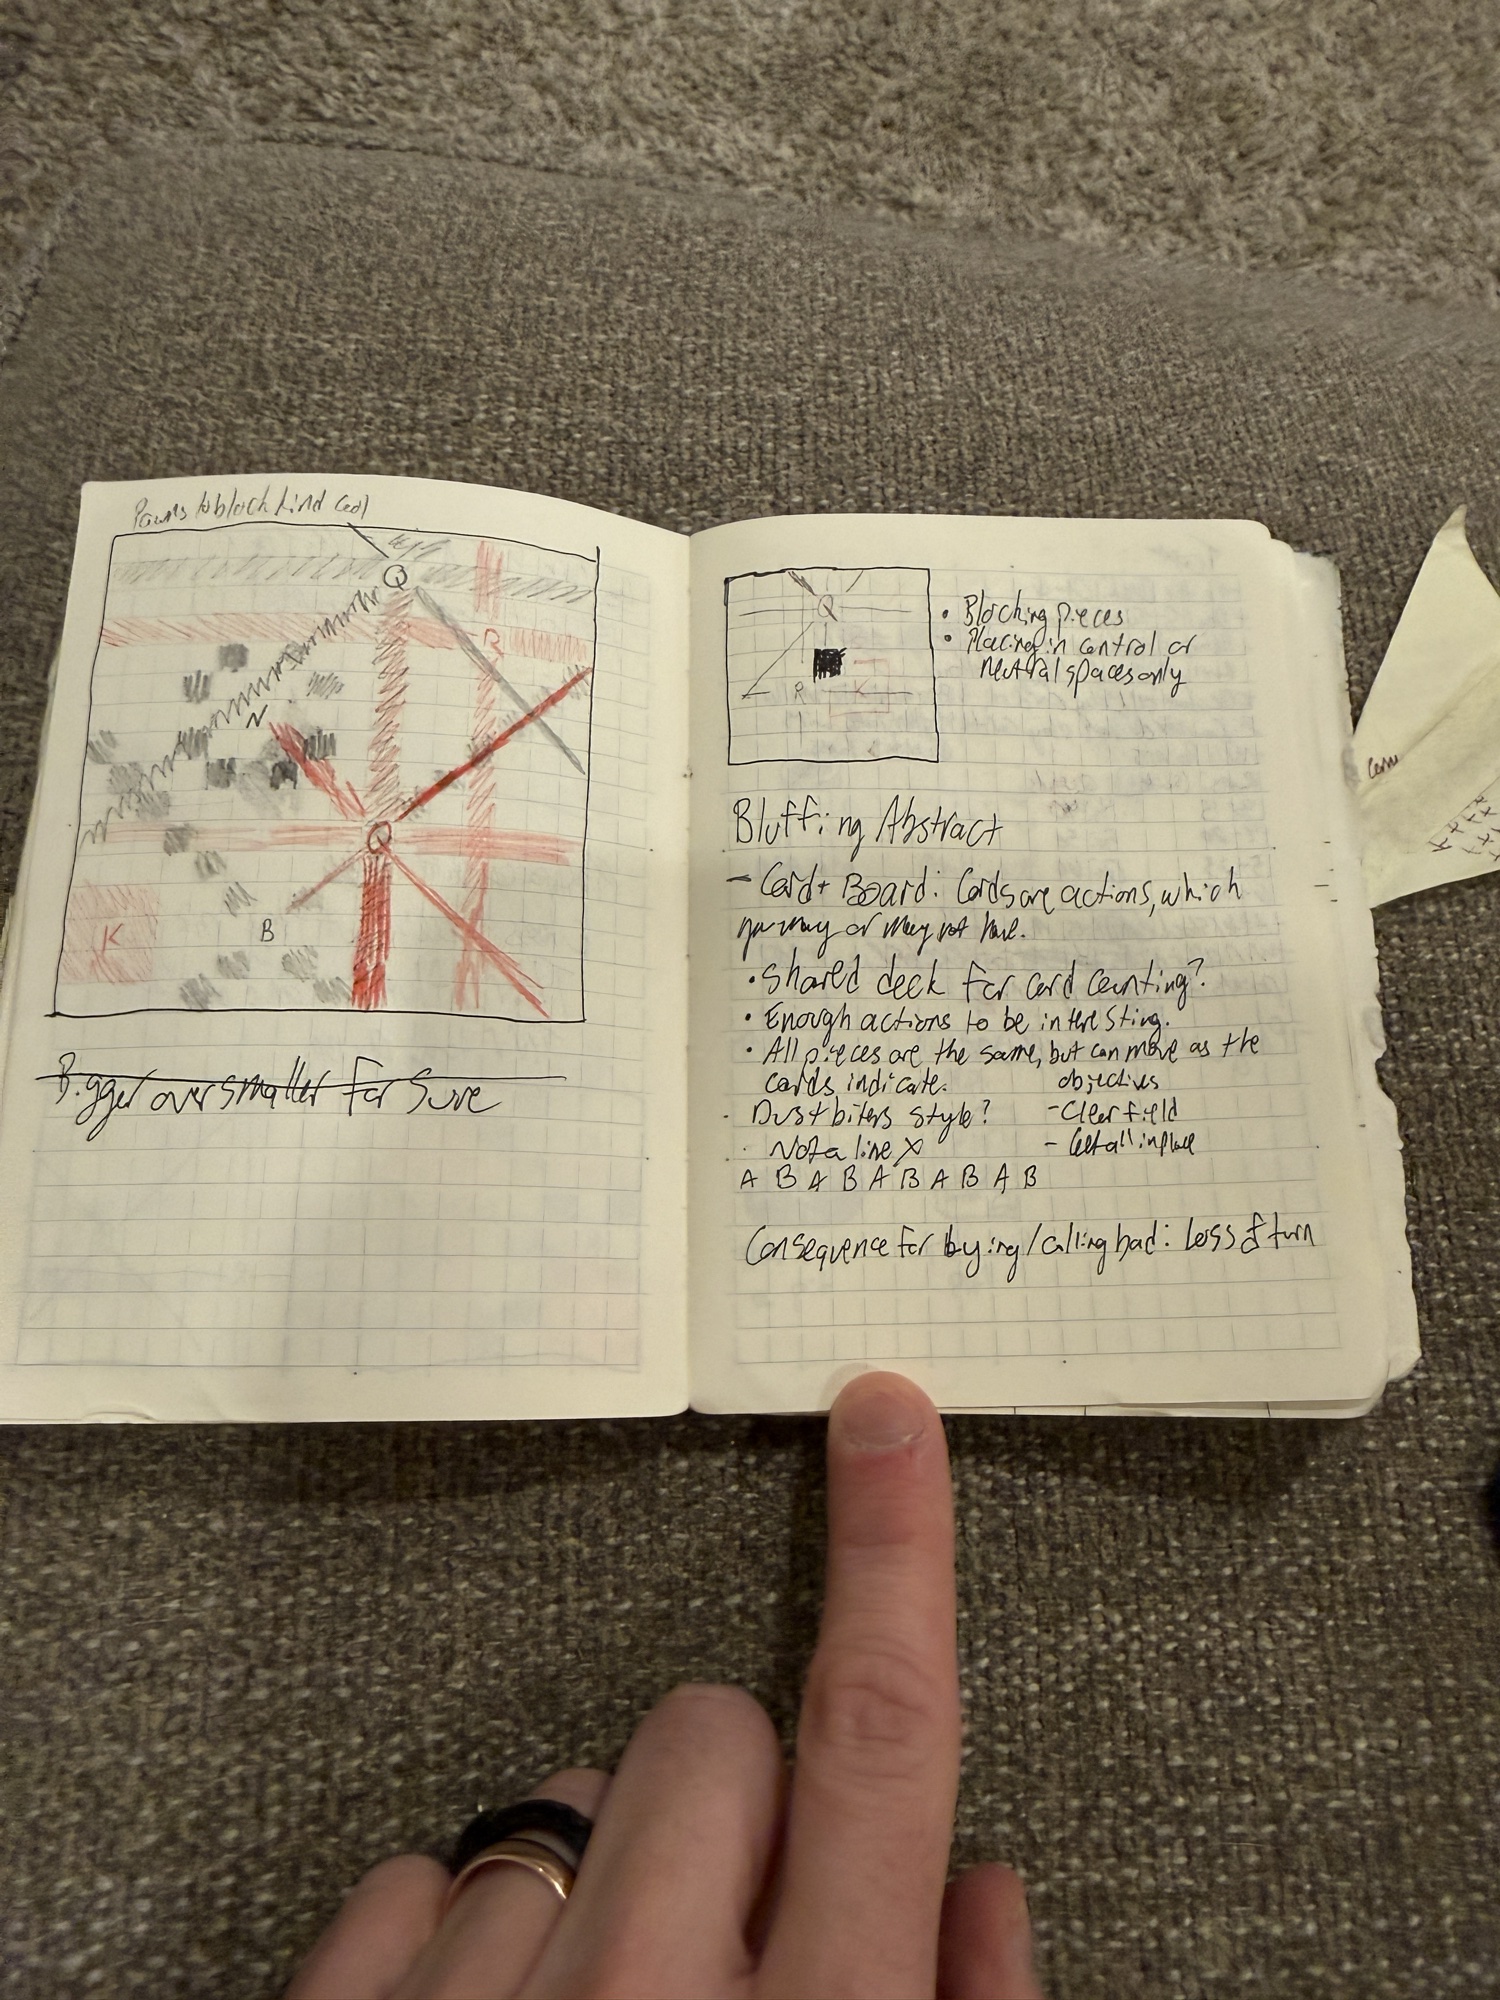 Pawns to block kind cool
Q
R
N
Q
K
B
Bigger over smaller for sure
Q
R
K
• Blocking pieces
• Placing in control or
neutral spaces only
Bluffing Abstract
- Card + Board: Cards are actions, which
you may or may not have.
• Shared deck for card counting?
• Enough actions to be interesting.
• All pieces are the same, but can move as the
cards indicate.
objectives
· Dustbiters style?
- Clear field
· Not a line X
- Get all in place
A B A B A B A B A B
Consequence for lying/calling bad: Loss of turn